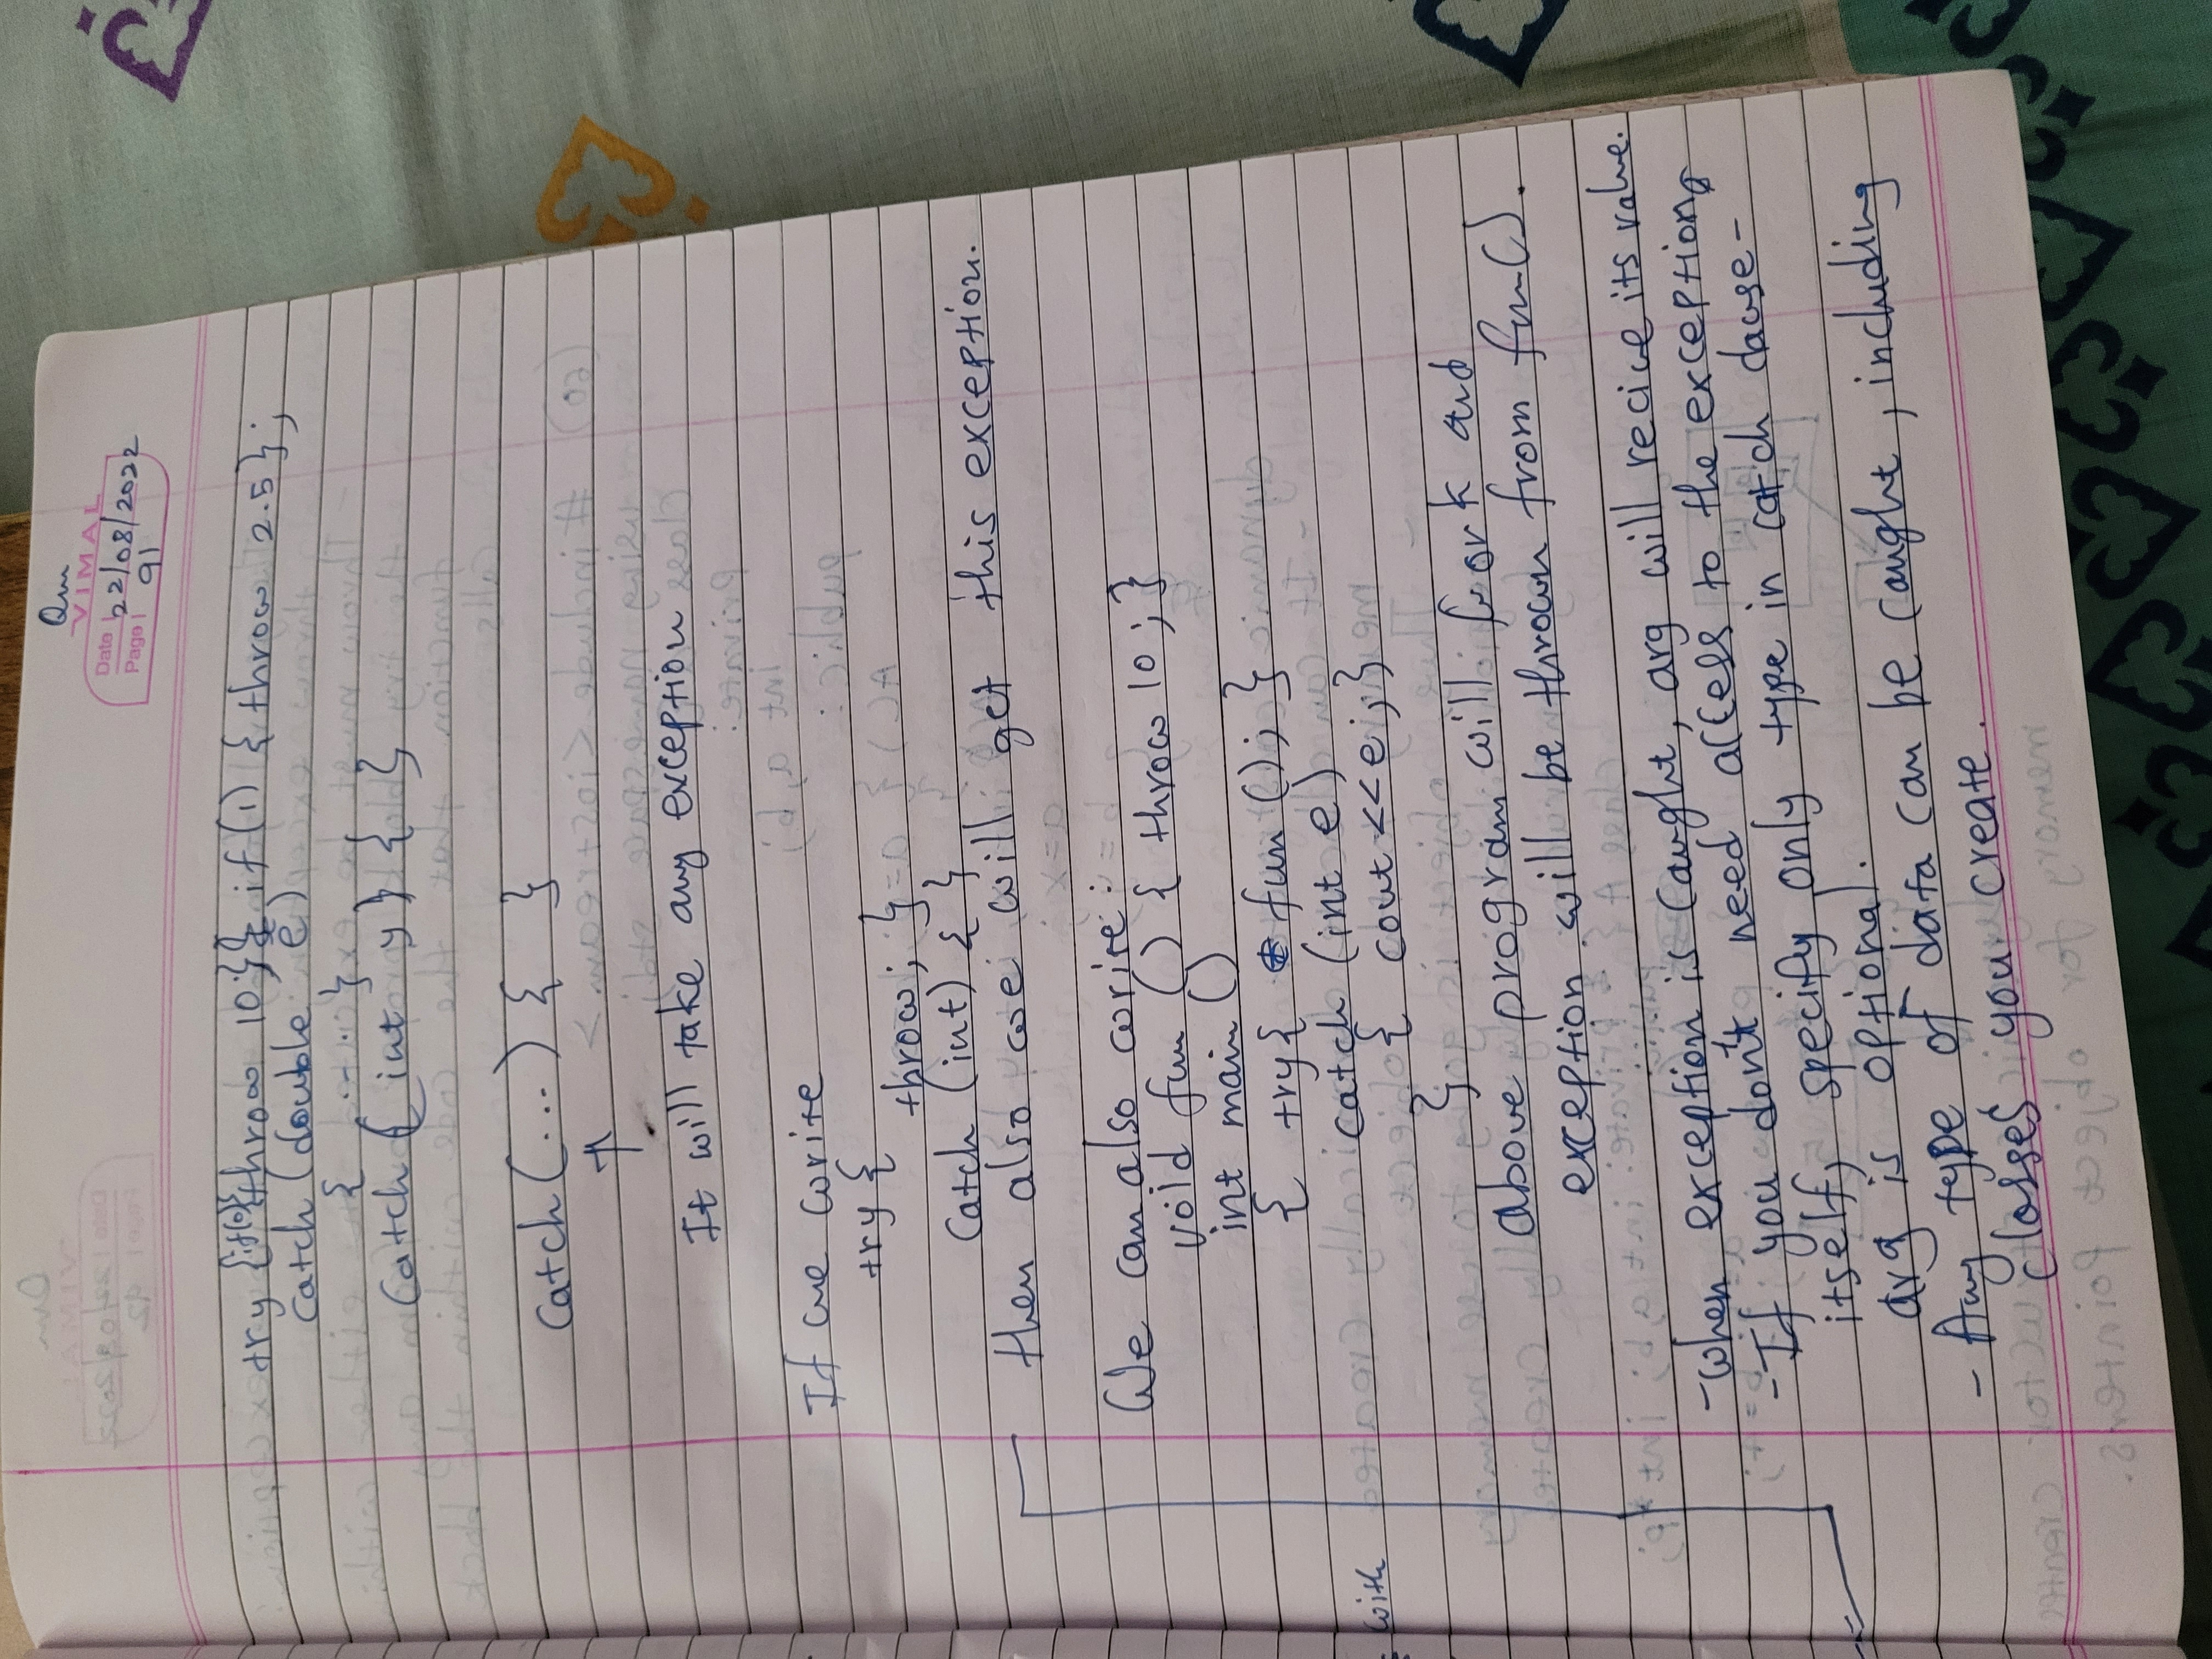 Om
VIMAL
Date | 22/08/2022
Page | 91
try {if(0){throw 10;} if (1) { throw 2.5};
catch (double e)
{ ... }
catch ( int y) { }
catch (...) { }
↑
It will take any exception
If we write
try {
throw; }
catch (int) { }
then also we will get this exception.
We can also write:
void fun () { throw 10 ; }
int main ()
{ try{ fun (); }
catch (int e)
{ cout <<e; }
}
with
above program will work and
exception will be thrown from fun().
- when exception is caught, arg will recive its value.
- If you don't need access to the exception
itself, specify only type in catch clause -
arg is optional.
- Any type of data can be caught, including
classes you create.